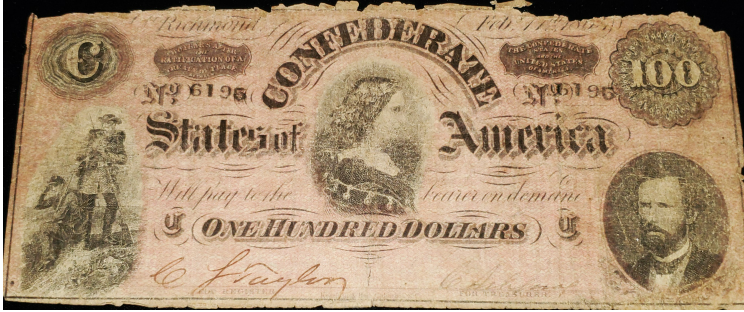 Richmond Feb
C TWO YEARS AFTER THE RATIFICATION OF A TREATY OF PEACE CONFEDERATE THE CONFEDERATE STATES AND THE UNITED STATES OF AMERICA 100
No 6196 No 6196
States of America
Will pay to the bearer on demand
C ONE HUNDRED DOLLARS C
C Taylor
FOR REGISTER FOR TREASURER